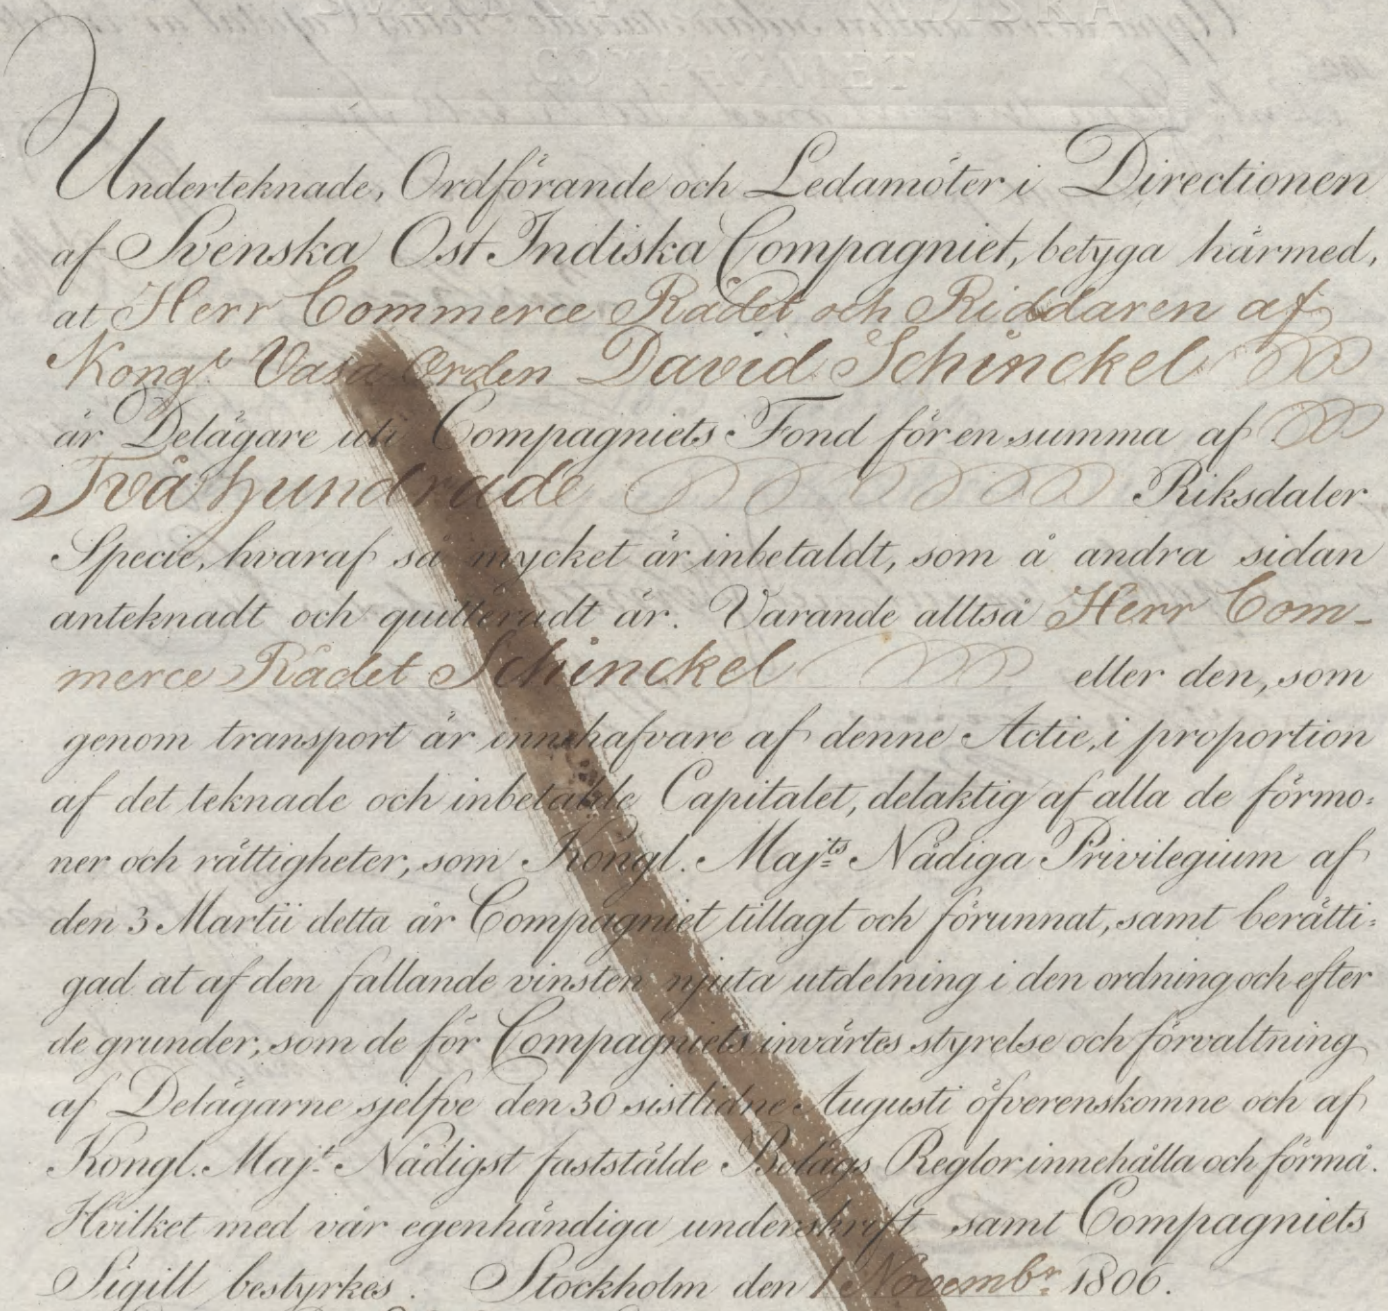 Underteknade, Ordförande och Ledamöter i Directionen
af Svenska Ost Indiska Compagniet, betyga härmed,
at Herr Commerce Rådet och Riddaren af
Kongl. Vasa Orden David Schinckel
är Delägare uti Compagniets Fond för en summa af
Två hundrade Riksdaler
Specie, hvaraf så mycket är inbetaldt, som å andra sidan
anteknadt och quitteradt är. Varande alltså Herr Com-
merce Rådet Schinckel eller den, som
genom transport är innehafvare af denne Actie, i proportion
af det teknade och inbetalde Capitalet, delaktig af alla de förmo=
ner och rättigheter, som Kongl. Majts Nådiga Privilegium af
den 3 Martii detta år Compagniet tillagt och förunnat, samt berätti=
gad at af den fallande vinsten njuta utdelning i den ordning och efter
de grunder, som de för Compagniets invärtes styrelse och förvaltning
af Delägarne sjelfve den 30 sistlidne Augusti öfverenskomne och af
Kongl. Majt Nådigst faststälde Bolags Reglor innehålla och förmå.
Hvilket med vår egenhändiga underskrift samt Compagniets
Sigill bestyrkes. Stockholm den 1 Novembr 1806.